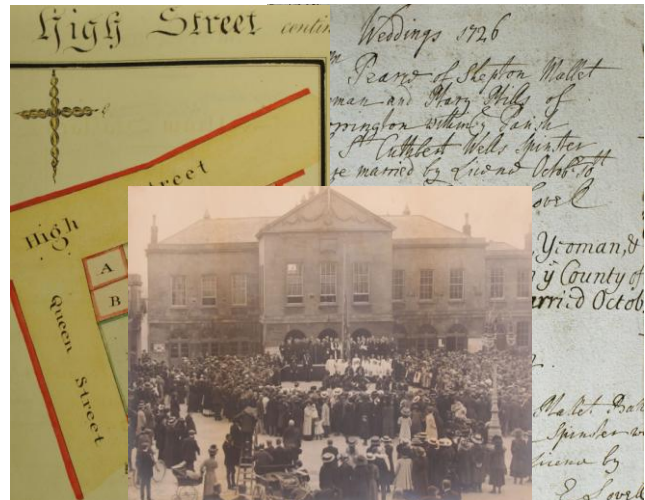 High Street contin
Street
High
A
B
Queen Street
Weddings 1726
Pearce of Shepton Mallet
man and Mary Mills of
rrington within ye Parish
St Cuthbert Wells Spinster
re married by Licence Octob. 10th
Lovell
Yeoman, &
n ye County of
arried Octob
Mallet Bak
Spinster w
Licence by
E Lovell